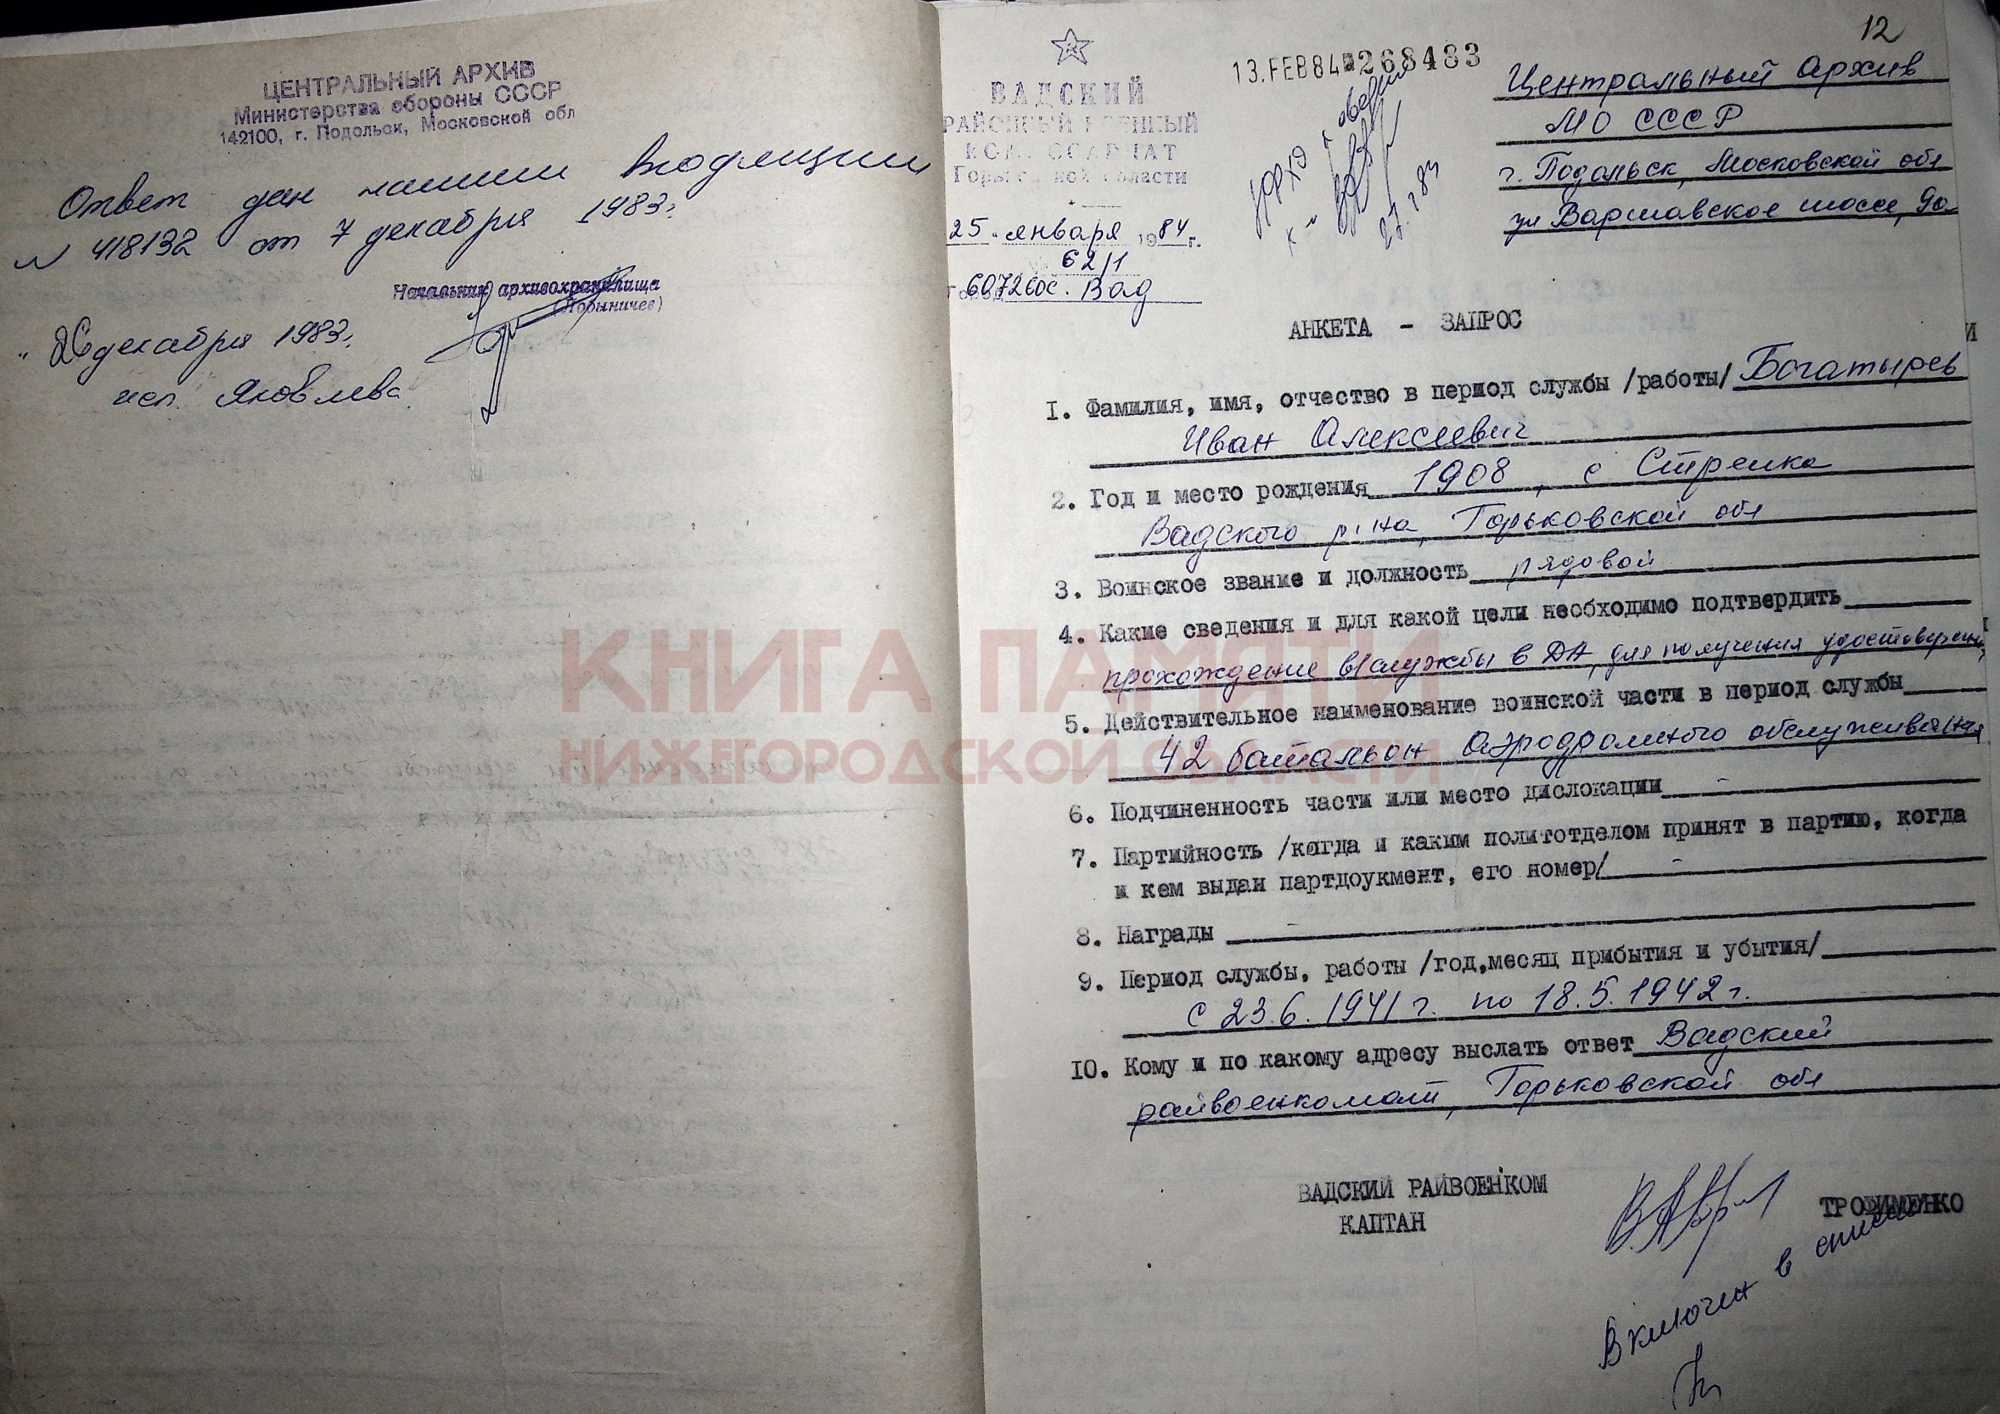 ЦЕНТРАЛЬНЫЙ АРХИВ
Министерства обороны СССР
142100, г. Подольск, Московской обл
Ответ дан нашим входящим
№ 418132 от 7 декабря 1983г.
Начальник архивохранилища
"26 декабря 1983г.
исп. Яковлева
12
13.FEB84 268483
ВАДСКИЙ
РАЙОННЫЙ ВОЕННЫЙ
КОМИССАРИАТ
Горьковской области
25 января 1984 г.
62/1
607260 с. Вад
Центральный архив
МО СССР
г. Подольск, Московской обл
ул Варшавское шоссе, 9а
АНКЕТА - ЗАПРОС
I. Фамилия, имя, отчество в период службы /работы/ Богатырев
Иван Алексеевич
2. Год и место рождения 1908, с Стрелка
Вадского р-на, Горьковской обл
3. Воинское звание и должность рядовой
4. Какие сведения и для какой цели необходимо подтвердить
прохождение в/службы в ДА, для получения удостоверения
5. Действительное наименование воинской части в период службы
42 батальон аэродромного обслуживания
6. Подчиненность части или место дислокации -
7. Партийность /когда и каким политотделом принят в партию, когда
и кем выдан партдоукмент, его номер/ -
8. Награды -
9. Период службы, работы /год,месяц прибытия и убытия/
с 23.6.1941 г. по 18.5.1942 г.
10. Кому и по какому адресу выслать ответ Вадский
райвоенкомат, Горьковской обл
ВАДСКИЙ РАЙВОЕНКОМ
КАПТАН
ТРОФИМЕНКО
Включен в список
КНИГА ПАМЯТИ
НИЖЕГОРОДСКОЙ ОБЛАСТИ